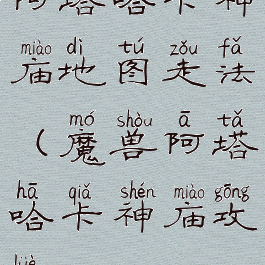 阿塔哈卡神
miào dì tú zǒu fǎ
庙地图走法
mó shòu ā tǎ
(魔兽阿塔
hā qiǎ shén miào gōng
哈卡神庙攻
lüè